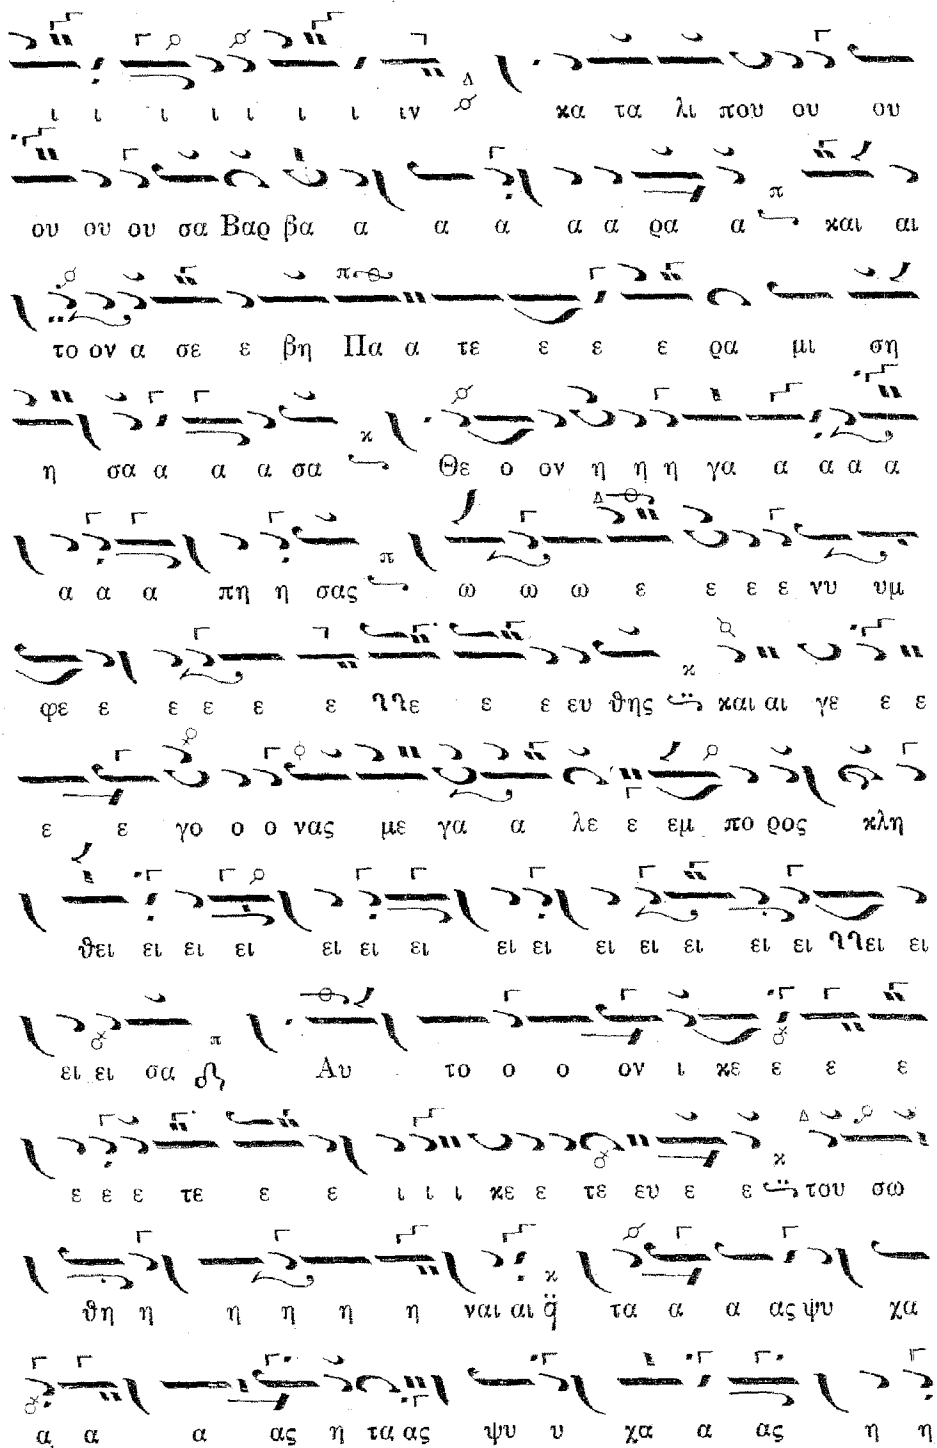 ι ι ι ι ι ι ι ιν κα τα λι που ου ου
ου ου ου σα Βαρ βα α α α α α ρα α και αι
το ον α σε ε βη Πα α τε ε ε ε ρα μι ση
η σα α α α σα Θε ο ον η η η γα α α α α
α α α πη η σας ω ω ω ε ε ε ε νυ υμ
φε ε ε ε ε ε ε ε ε ευ θης και αι γε ε ε
ε ε γο ο ο νας με γα α λε ε εμ πο ρος κλη
θει ει ει ει ει ει ει ει ει ει ει ει ει ει ει ει
ει ει σα Αυ το ο ο ον ι κε ε ε ε
ε ε ε τε ε ε ι ι ι κε ε τε ευ ε ε του σω
θη η η η η η ναι αι τα α α ας ψυ χα
α α α ας η τα ας ψυ υ χα α ας η η